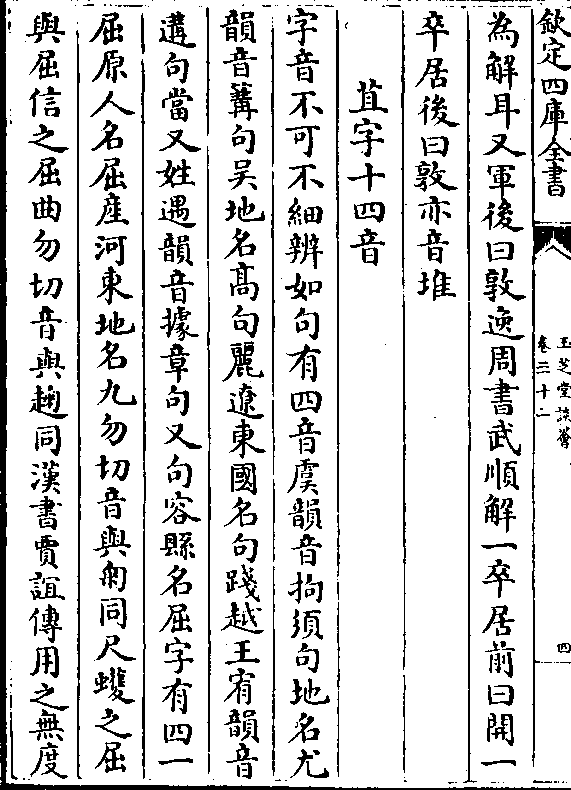 欽定四庫全書
玉芝堂談薈
卷三十二
四
為解耳又軍後曰敦逸周書武順解一卒居前曰開一
卒居後曰敦亦音堆
苴字十四音
字音不可不細辨如句有四音虞韻音拘須句地名尤
韻音篝句吳地名高句麗遼東國名句踐越王宥韻音
遘句當又姓遇韻音據章句又句容縣名屈字有四一
屈原人名屈産河東地名九勿切音與厥同尺蠖之屈
與屈信之屈曲勿切音與麯同漢書賈誼傳用之無度